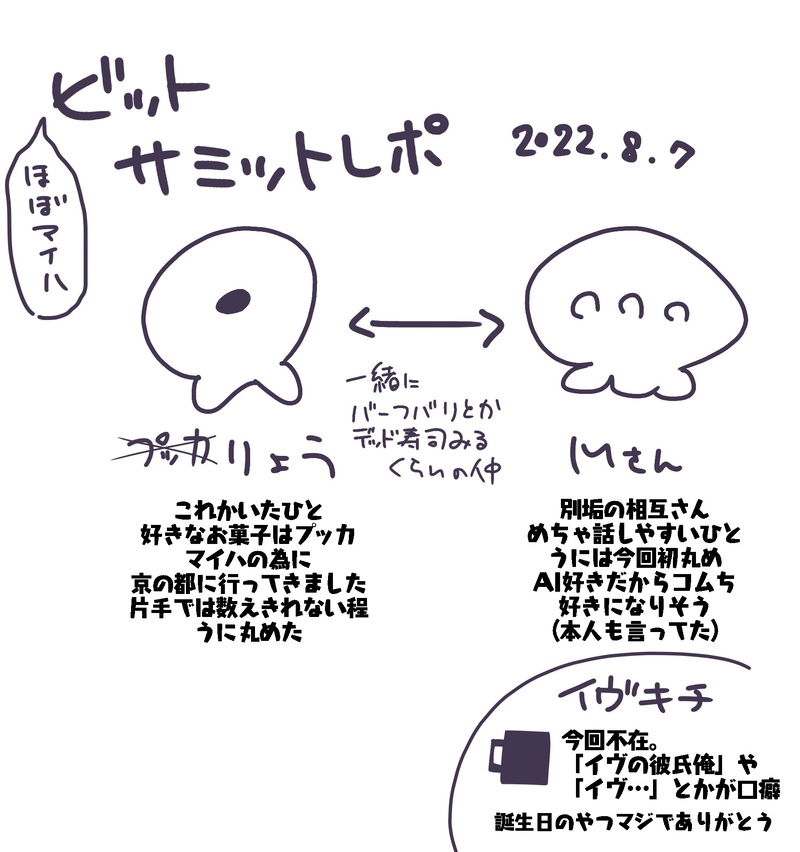 ビット
サミットレポ
2022.8.7
ほぼマイハ
一緒に
バーフバリとか
デッド寿司みる
くらいの仲
プッカりょう
Mさん
これかいたひと
好きなお菓子はプッカ
マイハの為に
京の都に行ってきました
片手では数えきれない程
うに丸めた
別垢の相互さん
めちゃ話しやすいひと
うには今回初丸め
AI好きだからコムち
好きになりそう
(本人も言ってた)
イヴキチ
今回不在。
「イヴの彼氏俺」や
「イヴ…」とかが口癖
誕生日のやつマジでありがとう